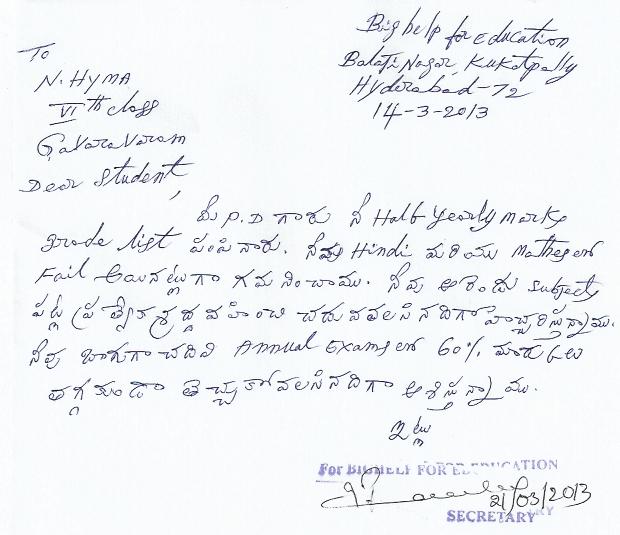 Big help for education
Balaji Nagar, Kukatpally
Hyderabad-72
14-3-2013
To
N. HYMA
VI th class
Gavaravaram
Dear Student,
మీ P.D గారు నీ Half Yearly marks
grade list పంపినారు. నీవు Hindi మరియు Mathsలో
Fail అయినట్లుగా గమనించాము. నీవు ఆ రెండు subjects
పట్ల ప్రత్యేక శ్రద్ధ వహించి చదువవలసినదిగా హెచ్చరిస్తున్నాము.
నీవు బాగుగా చదివి Annual Examsలో 60% మార్కులు
తగ్గకుండా తెచ్చుకోవలసినదిగా ఆశిస్తున్నాము.
ఇట్లు
For BIGHELP FOR EDUCATION
21/03/2013
SECRETARY